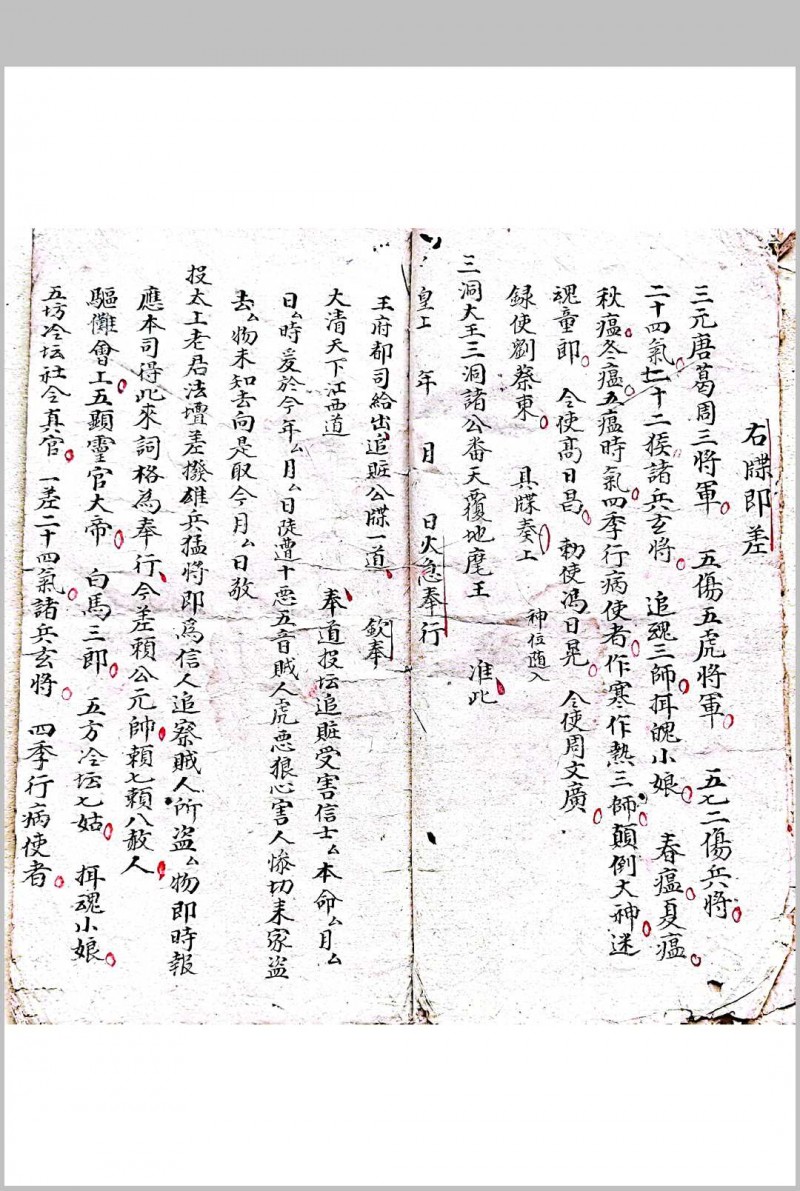 右牒即差
三元唐葛周三將軍 五傷五虎將軍 五七二傷兵將
二十四氣七十二猴諸兵玄將 追魂三師揖魄小娘 春瘟夏瘟
秋瘟冬瘟五瘟時氣四季行病使者作寒作熱三師顛倒大神迷
魂童郎 令使高日昌 勅使馮日晃 令使周文廣
録使劉蔡東 具牒奏上 神位随入
三洞大王三洞諸公番天覆地麾王 准此
皇上 年 月 日火急奉行
王府都司給出追賍公牒一道 欽奉
大清天下江西道 奉道投坛追賍受害信士厶本命厶月厶
日厶時爰於今年厶月厶日陡遭十惡五音賊人虎惡狼心害人惨切来家盗
去厶物未知去向是取今月厶日敬
投太上老君法壇差撥雄兵猛將即爲信人追察賊人所盗厶物即時報
應本司得此來詞格為奉行今差賴公元帥賴七賴八赦人
驅儺會上五顯靈官大帝 白馬三郎 五方冷坛七姑 揖魂小娘
五坊冷坛社令真官 一差二十四氣諸兵玄將 四季行病使者